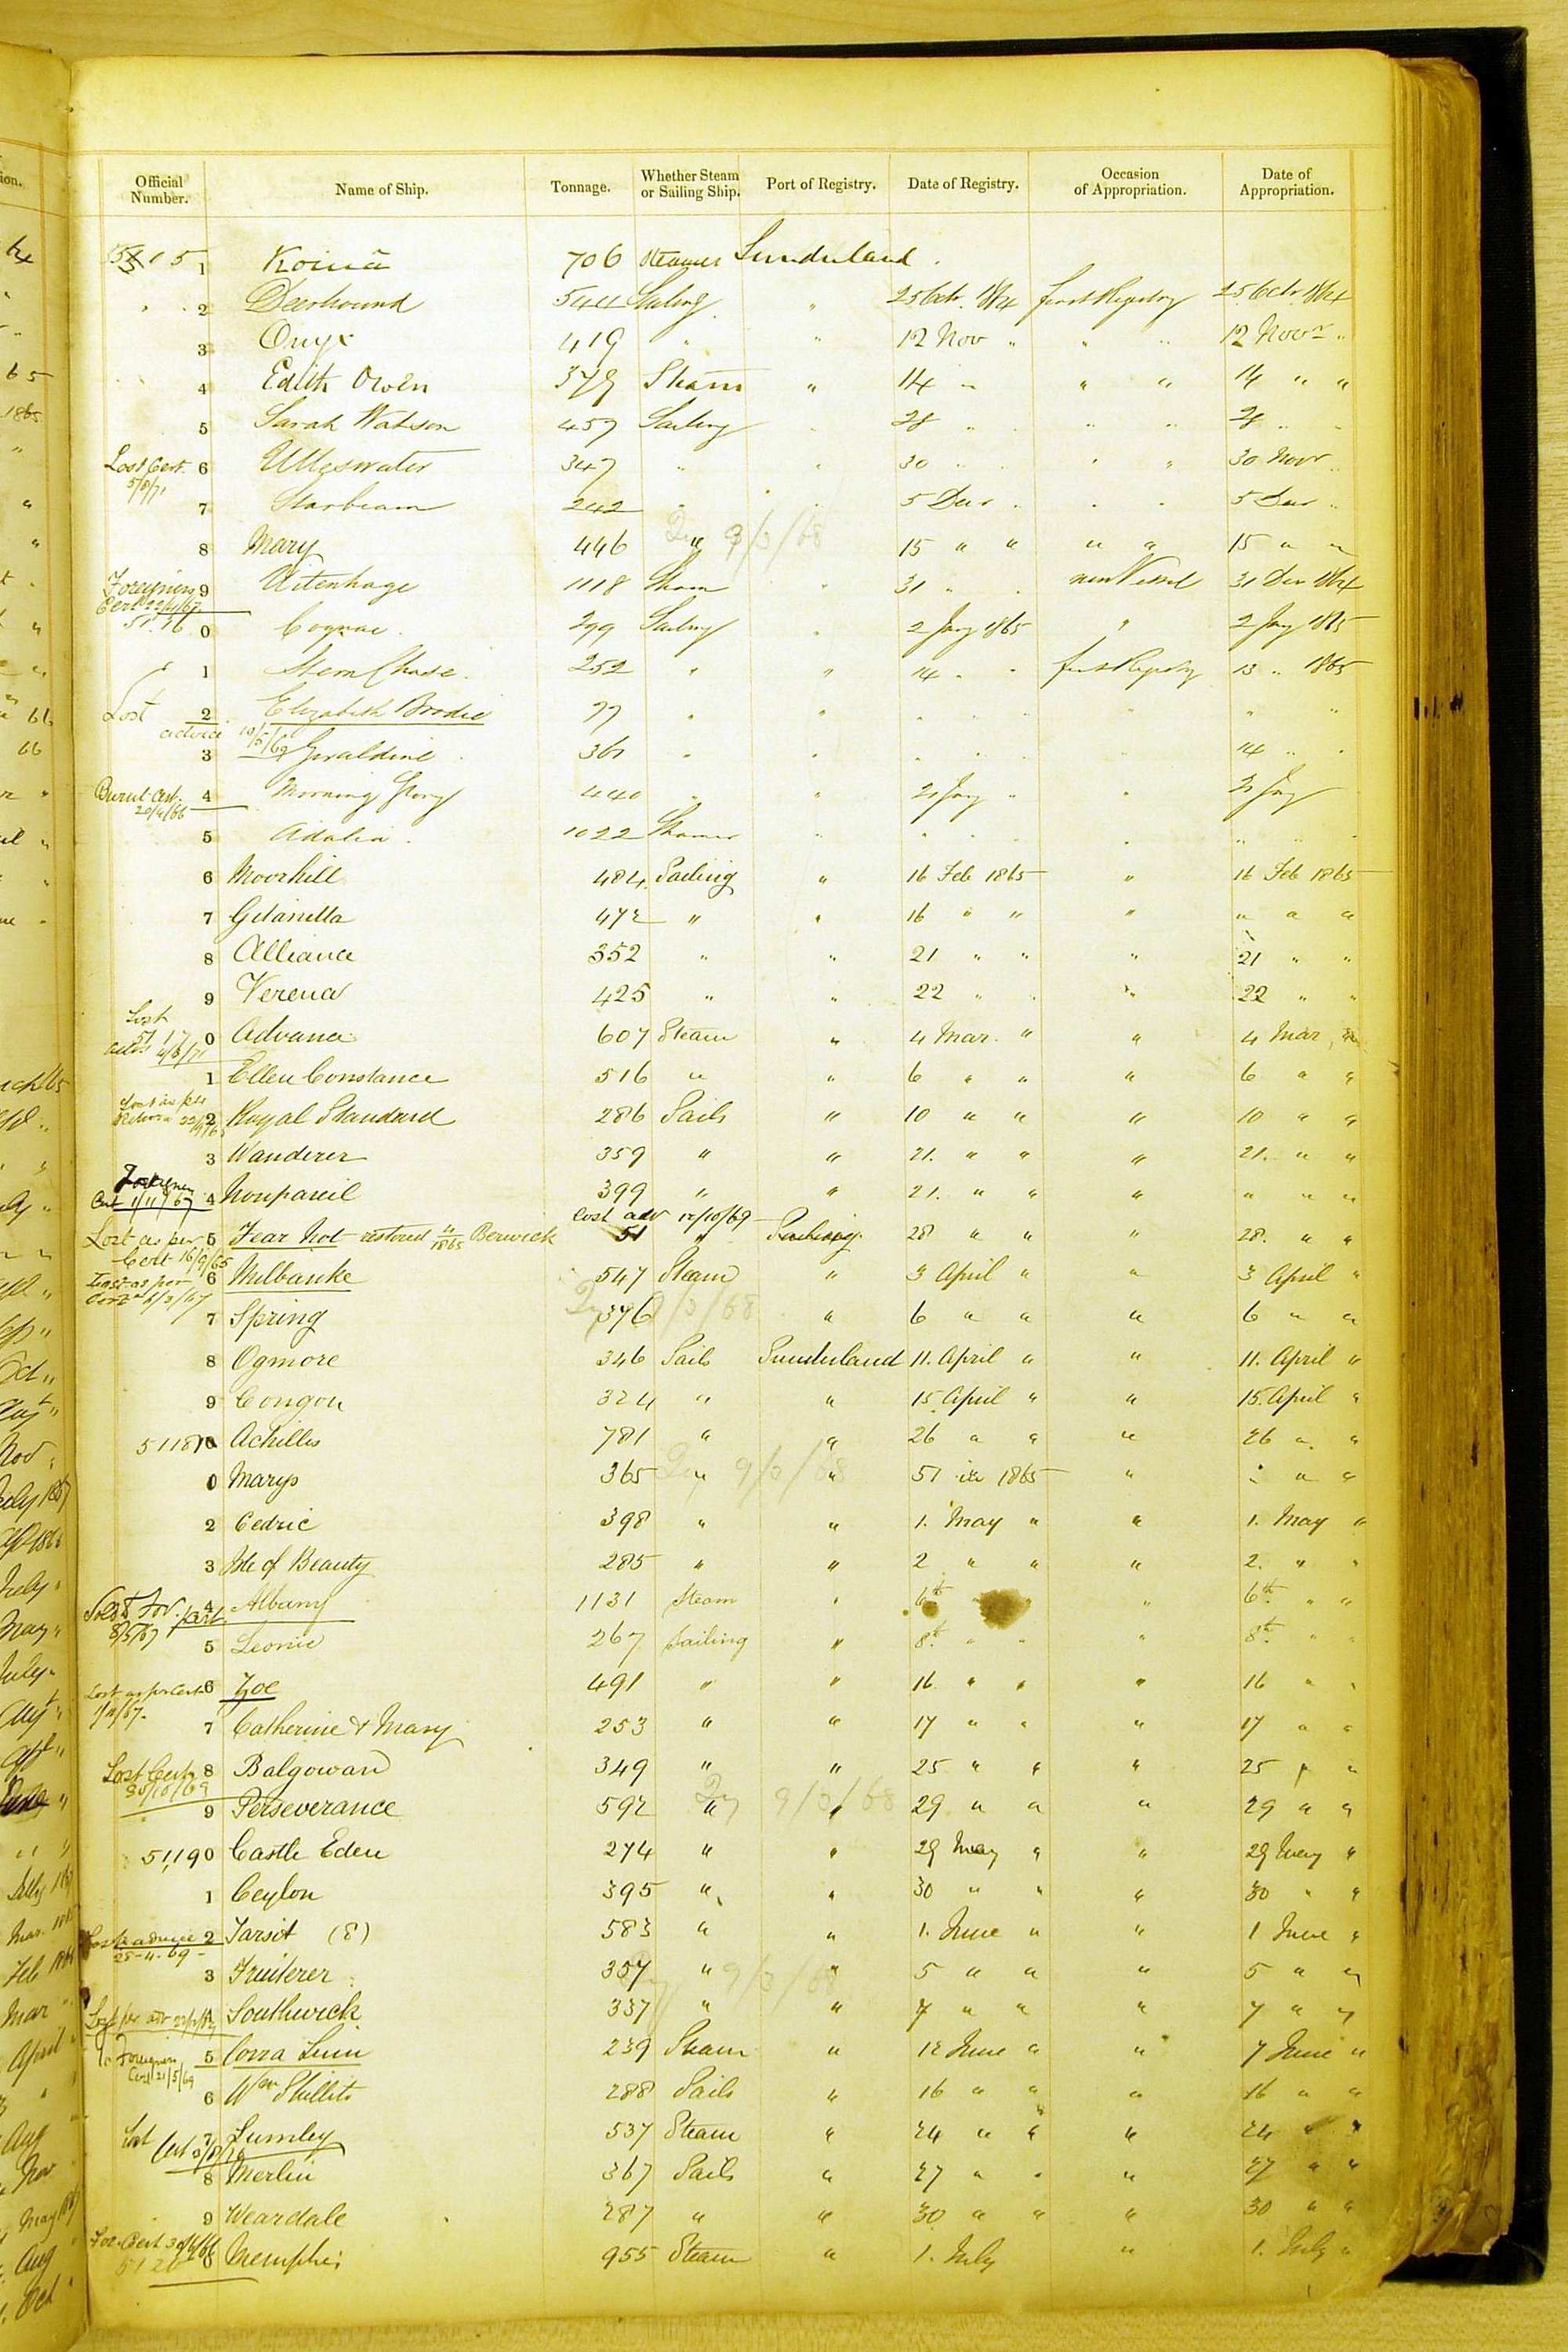 Official Number. Name of Ship. Tonnage. Whether Steam or Sailing Ship. Port of Registry. Date of Registry. Occasion of Appropriation. Date of Appropriation.
1 706 Steamer Sunderland
2 Deerhound 544 Sailing " 25 Octr. 1864 first Registry 25 Octr 1864
3 Onyx 419 " " 12 Nov " " " 12 Novr "
4 Edith Owen 379 Steam " 14 " " " 14 " "
5 Sarah Watson 457 Sailing " 28 " " " " 28 " "
Lost Cert. 5/8/71 6 Ulleswater 347 " " 30 " " " " 30 Novr "
7 Starbeam 242 " " 5 Decr " " " 5 Decr "
8 Mary 446 " 9/3/68 15 " " " " 15 " "
Foreigners Cert 9 Uitenhage 1118 Steam " 31 " " new Vessel 31 Decr 1864
51.16 0 Cognac 299 Sailing " 2 Jany 1865 " 2 Jany 1865
1 Stern Chase 252 " " 14 " " first Registry 13 " 1865
Lost advice 2 Elizabeth Brodie 97 " " " " " " " "
3 Geraldine 361 " " " " " " 14 " "
Burnt Cert. 20/4/66 4 Morning Glory 440 " " 21 Jany " " 21 Jany
5 Adalia 1022 Steamer " " " " " " " "
6 Moorhill 484 Sailing " 16 Feb 1865 " 16 Feb 1865
7 Gitanilla 472 " " 16 " " " " " "
8 Alliance 352 " " 21 " " " 21 " "
9 Verena 425 " " 22 " " " 22 " "
Lost 51 17 0 Advance 607 Steam " 4 Mar. " " 4 Mar "
1 Ellen Constance 516 " " 6 " " " 6 " "
Lost as per 2 Royal Standard 286 Sails " 10 " " " 10 " "
3 Wanderer 359 " " 21. " " " 21. " "
Foreigners Cert 1/11/67 4 Nonpareil 399 " " 21. " " " " " "
Lost adv 12/10/69
Lost as per Cert 16/9/65 5 Fear Not restored 1865 Berwick 51 " 28 " " " 28. " "
Lost as per Cert 6/3/67 6 Milbanke 547 Steam " 3 April " " 3 April "
7 Spring 376 9/3/68 " 6 " " " 6 " "
8 Ogmore 346 Sails Sunderland 11. April " " 11. April "
9 Congou 324 " " 15 April " " 15. April "
51180 Achilles 781 " " 26 " " " 26 " "
0 Marys 365 " 9/3/68 " 1865 " " " "
2 Cedric 398 " " 1. May " " 1. May "
3 Isle of Beauty 285 " " 2 " " " 2. " "
Sold For. 8/5/67 4 Albany 1131 Steam " 6th " " " 6th " "
5 Leonie 267 Sailing " 8th " " " 8th " "
Lost as per Cert 6 Zoe 491 " " 16 " " " 16 " "
7 Catherine & Mary 253 " " 17 " " " 17 " "
Lost Cert 30/10/69 8 Balgowan 349 " " 25 " " " 25 " "
9 Perseverance 592 " 9/3/68 " 29 " " " 29 " "
51190 Castle Eden 274 " " 29 May " " 29 May "
1 Ceylon 395 " " 30 " " " 30 " "
Lost advice 28-4-69 2 Tarsit (E) 583 " " 1. June " " 1 June "
3 Fruiterer 357 " 9/3/68 " 5 " " " 5 " "
Lost per adv 4 Southwick 337 " " 7 " " " 7 " "
To Foreigners Cert 21/5/69 5 Corra Linn 239 Steam " 12 June " " 7 June "
6 Wm Skillito 288 Sails " 16 " " " 16 " "
Lost Cert 7 Lumley 537 Steam " 24 " " " 24 " "
8 Merlin 367 Sails " 27 " " " 27 " "
9 Weardale 287 " " 30 " " " 30 " "
For. Cert 5120 0 Memphis 955 Steam " 1. July " 1. July "